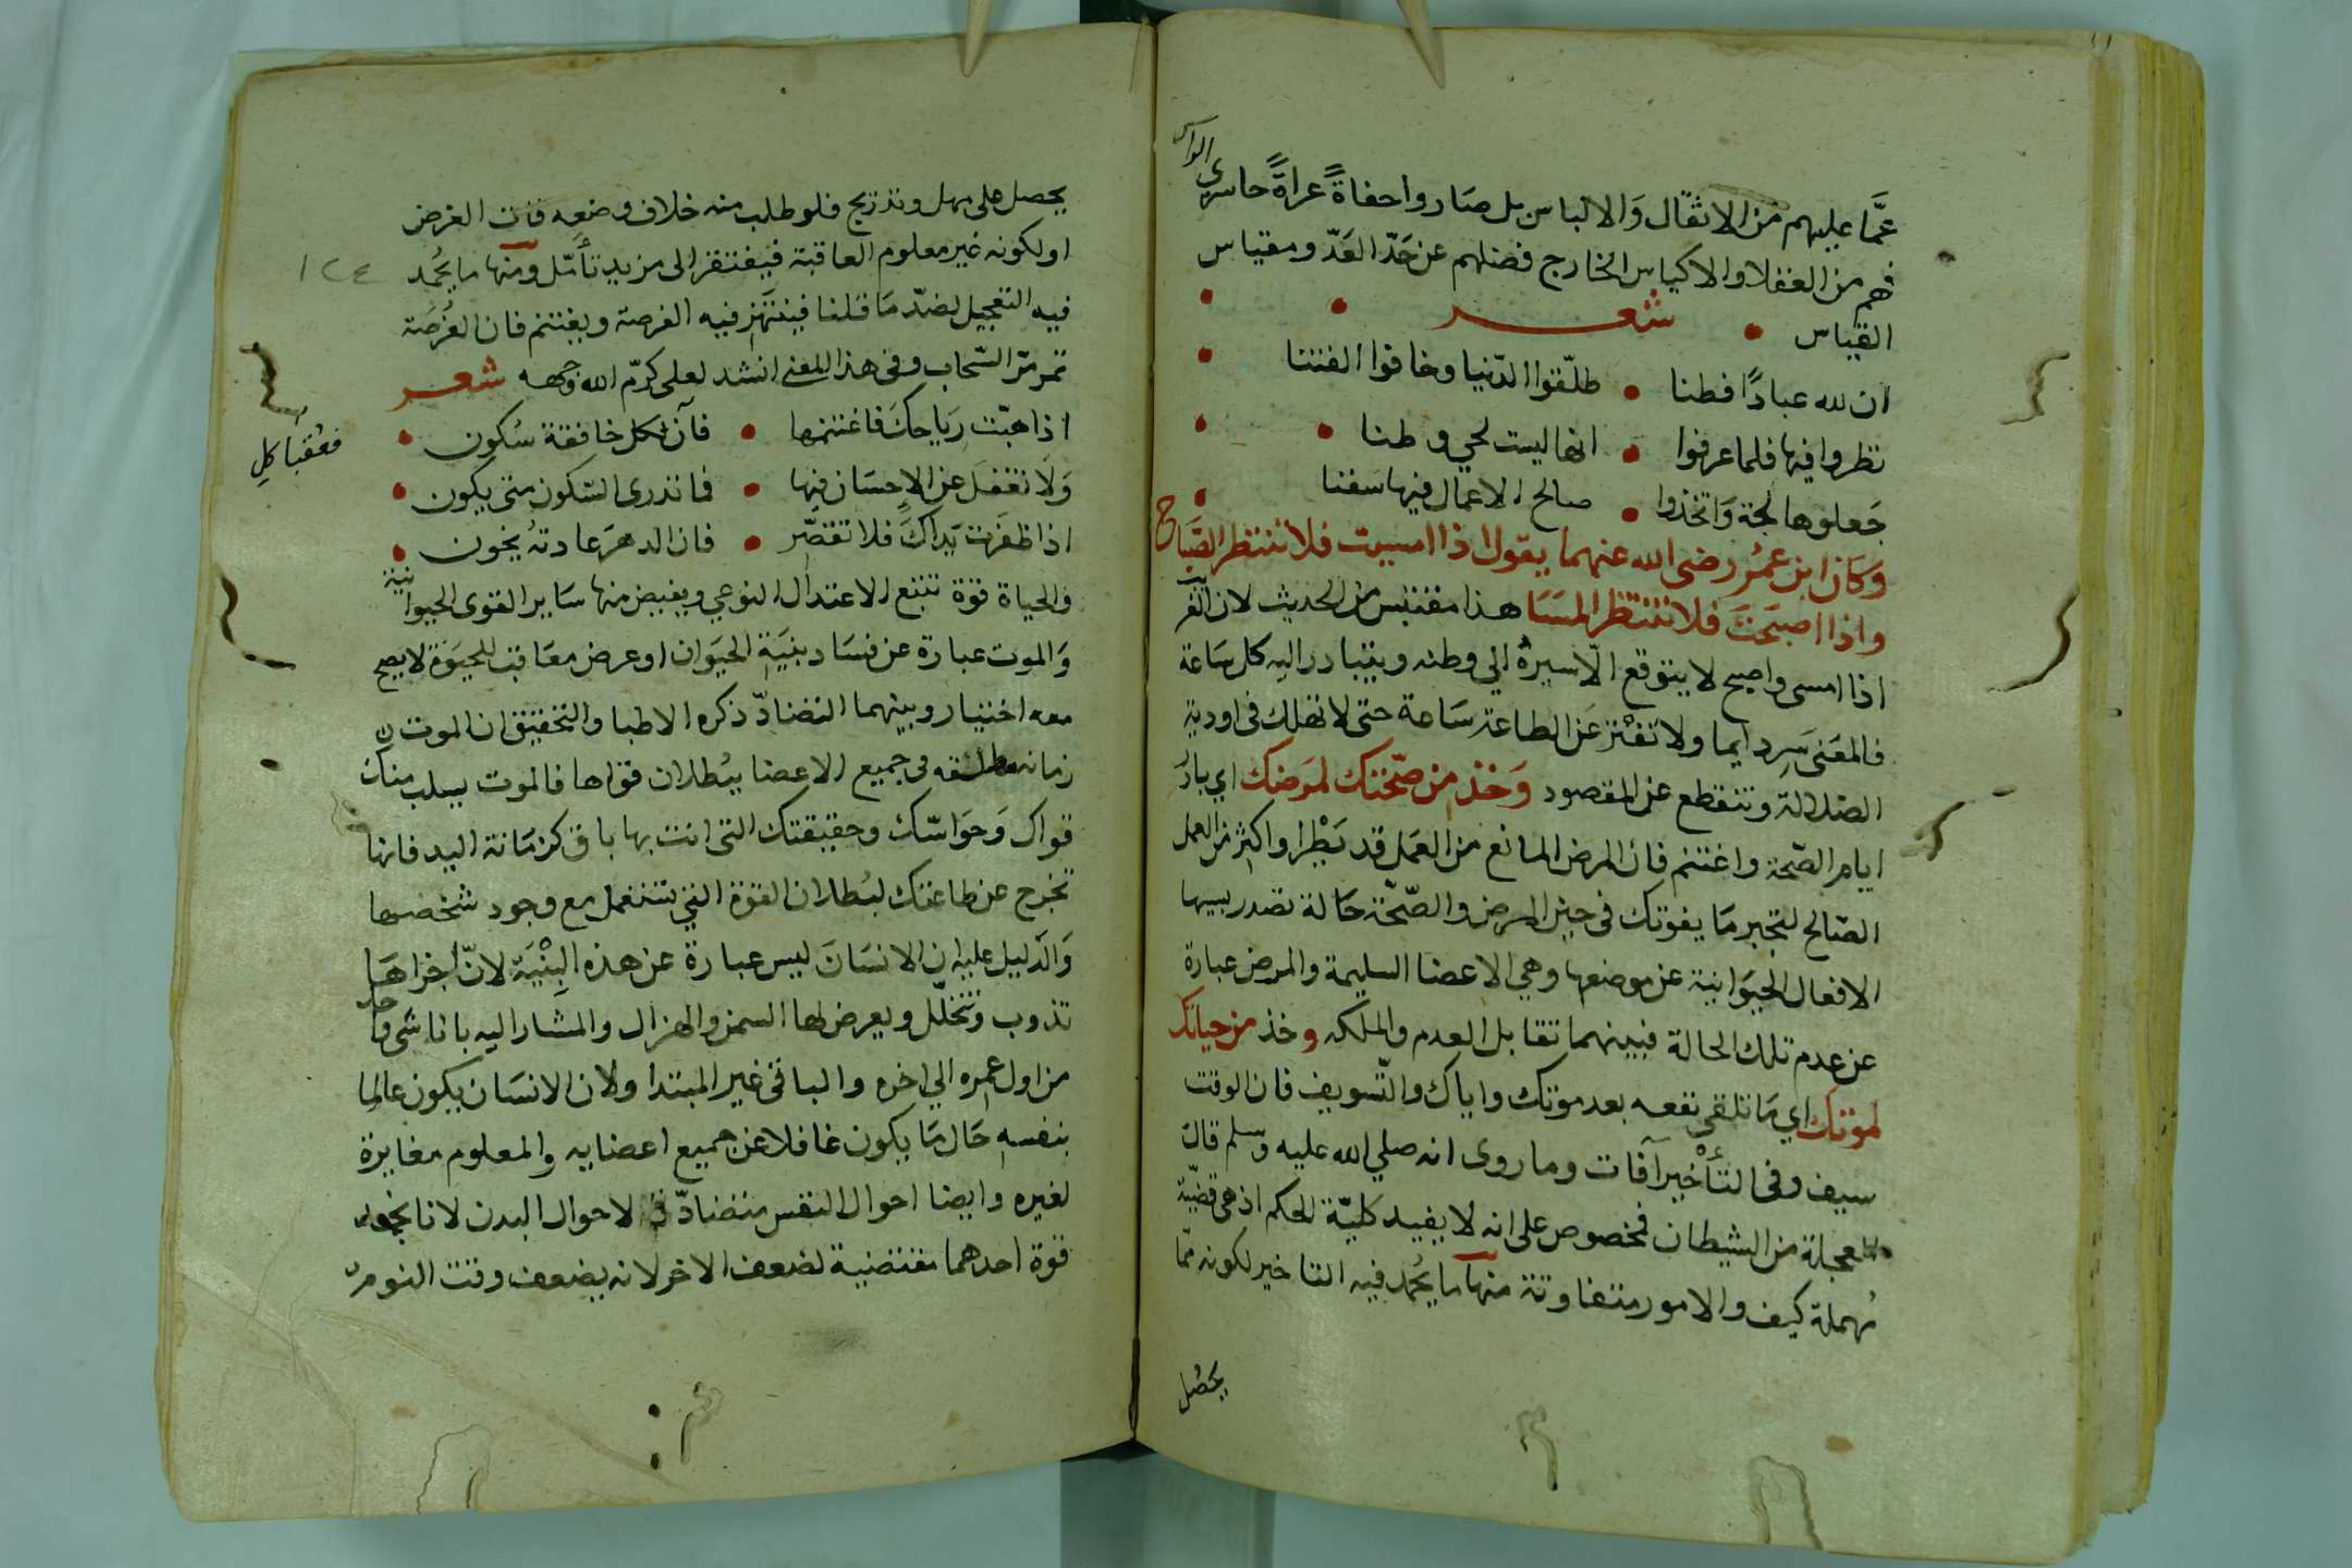 عمَّا عليهم من الاثقال وَالالباس بل صَاروا حفاةً عراةً حاسرى الراس
فهم من العقلا والاكياس الخارج فضلهم عن حَدّ العَدّ ومقياس
القياس شعر
ان لله عبادًا فطنا طلّقوا الدّنيا وخافوا الفتنا
نظروا فيها فلما عرفوا انها ليست لحي وطنا
جَعلوها لجة وَاتخذوا صالح الاعمال فيها سفنا
وَكَان ابن عمُر رضى الله عنهما يقول اذا امسيت فلا تنتظر الصَّباح
واذا اصبَحتَ فلا تنتظر المسَا هذا مقتبس من الحديث لان الغريب
اذا امسى واصبح لا يتوقع الّا سيرهُ الي وطنه ويتبادر اليه كل سَاعة
فالمعَنى سِر دايما ولا تفْتر عَن الطاعة سَاعة حتى لا تهلك فى اودية
الضلالة وتنقطع عن المقصود وَخذ من صحّتك لمرَضك اي بادُر
ايام الصّحة واغتنم فان المرض المانع من العَمل قد يَطْرا واكثِر من العمل
الصّالح لتجبر مَا يفوتك فى حين المرض والصّحّة حَالة تصدر بسببها
الافعال الحيوَانية عن موضعها وهي الاعضا السليمة والمرض عبارة
عن عدم تلك الحالة فبينهما تقابل العدم والملكه وخذ من حياتك
لموتك اي مَا تلقى نفعه بعد موتك واياك والتّسويف فان الوقت
سيف وفى التأْخير آفات وما روى انه صلي الله عليه وسلم قال
العجلة من الشيطان فمخصوص على انه لا يفيد كليّة الحكم اذ هى قضيّة
مُهملة كيف والامور متفاوتة منها ما يُحمد فيه التاخير لكونه ممّا
يحصل
يحصل على مهل وتدريج فلو طلب منه خلاف وضعه فات الغرض
او لكونه غير معلوم العاقبة فيفتقر الى مزيد تأمّل ومنها ما يحُمد
١٢٤
فيه التعجيل لضدّ مَا قلنا فينتَهز فيه الفرصة ويغتنم فان الفُرصَة
تمر مرّ السّحاب وفى هذا المعنى انشد لعلى كرّم الله وجهه شعر
اذا هبّت ريَاحكَ فاغتنمها فان لكل خافقة سُكون
فعقبا كلِ
وَلَا تغفَل عن الاِحسَان فيها فما تدرى السّكون متى يكون
اذا ظفَرت يَداكَ فلا تقصّر فان الدهرَ عادتهُ يخون
والحياة قوّة تتبع الاعتدال النوعي ويفيض منها ساير القوى الحيوانية
وَالموت عبارة عن فسَاد بنيَةِ الحيَوان او عرض معَاقب للحيَوة لا يصح
معه اختيار وبينهما التضادّ ذكره الاطبا والتحقيق ان الموت
زمانه مطلقه فى جميع الاعضا ببُطلان قواها فالموت يسلب منك
قواك وَحوَاسّك وحقيقتك التى انت بها باق كزمَانة اليد فانها
تخرج عن طاعتك لبُطلان القوّة التي تستعمل مع وجود شخصها
وَالدّليل عليه ان الانسَانَ ليس عبارة عن هذه البِنْيَة لانّ اجزاهَا
تذوب وتتحلّل ويعرض لها السمن والهزال والمشار اليه بانا شى واحد
من اول عمره الي اخره والباقى غير المبتدا ولان الانسَان يكون عالما
بنفسه حَال مَا يكون غافلا عن جميع اعضايه والمعلوم مغايرة
لغيره وايضا احوال النفس متضادّة لاحوال البدن لانا نجد
قوة احدهما مقتضية لضعف الاخر لانه يضعف وقت النوم